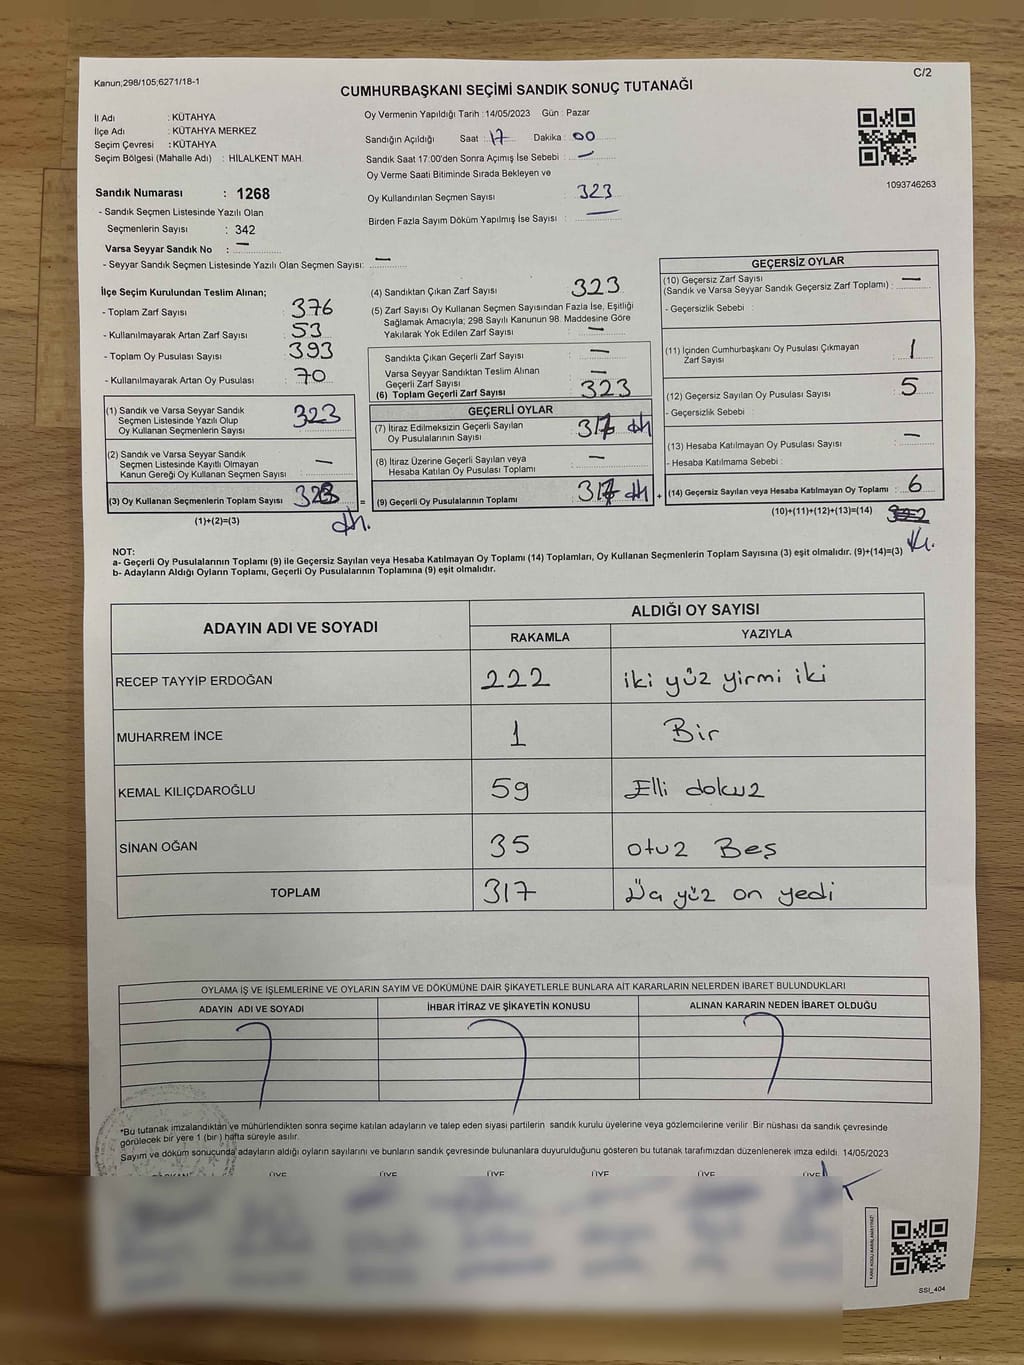 Kanun;298/105;6271/18-1
C/2
CUMHURBAŞKANI SEÇİMİ SANDIK SONUÇ TUTANAĞI
İl Adı : KÜTAHYA
İlçe Adı : KÜTAHYA MERKEZ
Seçim Çevresi : KÜTAHYA
Seçim Bölgesi (Mahalle Adı) : HİLALKENT MAH.
Sandık Numarası : 1268
- Sandık Seçmen Listesinde Yazılı Olan
Seçmenlerin Sayısı : 342
Varsa Seyyar Sandık No : —
- Seyyar Sandık Seçmen Listesinde Yazılı Olan Seçmen Sayısı: —
Oy Vermenin Yapıldığı Tarih :14/05/2023 Gün : Pazar
Sandığın Açıldığı Saat : 17 Dakika : 00
Sandık Saat 17:00'den Sonra Açımış İse Sebebi : —
Oy Verme Saati Bitiminde Sırada Bekleyen ve
Oy Kullandırılan Seçmen Sayısı : 323
Birden Fazla Sayım Döküm Yapılmış İse Sayısı : —
1093746263
İlçe Seçim Kurulundan Teslim Alınan;
- Toplam Zarf Sayısı : 376
- Kullanılmayarak Artan Zarf Sayısı : 53
- Toplam Oy Pusulası Sayısı : 393
- Kullanılmayarak Artan Oy Pusulası : 70
(1) Sandık ve Varsa Seyyar Sandık
Seçmen Listesinde Yazılı Olup
Oy Kullanan Seçmenlerin Sayısı : 323
(2) Sandık ve Varsa Seyyar Sandık
Seçmen Listesinde Kayıtlı Olmayan
Kanun Gereği Oy Kullanan Seçmen Sayısı : —
(3) Oy Kullanan Seçmenlerin Toplam Sayısı : 323
(1)+(2)=(3)
(4) Sandıktan Çıkan Zarf Sayısı : 323
(5) Zarf Sayısı Oy Kullanan Seçmen Sayısından Fazla İse, Eşitliği
Sağlamak Amacıyla; 298 Sayılı Kanunun 98. Maddesine Göre
Yakılarak Yok Edilen Zarf Sayısı : —
Sandıkta Çıkan Geçerli Zarf Sayısı : —
Varsa Seyyar Sandıktan Teslim Alınan
Geçerli Zarf Sayısı : —
(6) Toplam Geçerli Zarf Sayısı : 323
GEÇERLİ OYLAR
(7) İtiraz Edilmeksizin Geçerli Sayılan
Oy Pusulalarının Sayısı : 317
(8) İtiraz Üzerine Geçerli Sayılan veya
Hesaba Katılan Oy Pusulası Toplamı : —
= (9) Geçerli Oy Pusulalarının Toplamı : 317
GEÇERSİZ OYLAR
(10) Geçersiz Zarf Sayısı
(Sandık ve Varsa Seyyar Sandık Geçersiz Zarf Toplamı) : —
- Geçersizlik Sebebi :
(11) İçinden Cumhurbaşkanı Oy Pusulası Çıkmayan
Zarf Sayısı : 1
(12) Geçersiz Sayılan Oy Pusulası Sayısı : 5
- Geçersizlik Sebebi :
(13) Hesaba Katılmayan Oy Pusulası Sayısı : —
- Hesaba Katılmama Sebebi :
+ (14) Geçersiz Sayılan veya Hesaba Katılmayan Oy Toplamı : 6
(10)+(11)+(12)+(13)=(14)
NOT:
a- Geçerli Oy Pusulalarının Toplamı (9) ile Geçersiz Sayılan veya Hesaba Katılmayan Oy Toplamı (14) Toplamları, Oy Kullanan Seçmenlerin Toplam Sayısına (3) eşit olmalıdır. (9)+(14)=(3)
b- Adayların Aldığı Oyların Toplamı, Geçerli Oy Pusulalarının Toplamına (9) eşit olmalıdır.
ADAYIN ADI VE SOYADI
ALDIĞI OY SAYISI
RAKAMLA YAZIYLA
RECEP TAYYİP ERDOĞAN 222 iki yüz yirmi iki
MUHARREM İNCE 1 Bir
KEMAL KILIÇDAROĞLU 59 Elli dokuz
SİNAN OĞAN 35 otuz Beş
TOPLAM 317 Üç yüz on yedi
OYLAMA İŞ VE İŞLEMLERİNE VE OYLARIN SAYIM VE DÖKÜMÜNE DAİR ŞİKAYETLERLE BUNLARA AİT KARARLARIN NELERDEN İBARET BULUNDUKLARI
ADAYIN ADI VE SOYADI İHBAR İTİRAZ VE ŞİKAYETİN KONUSU ALINAN KARARIN NEDEN İBARET OLDUĞU
*Bu tutanak imzalandıktan ve mühürlendikten sonra seçime katılan adayların ve talep eden siyasi partilerin sandık kurulu üyelerine veya gözlemcilerine verilir. Bir nüshası da sandık çevresinde
görülecek bir yere 1 (bir) hafta süreyle asılır.
Sayım ve döküm sonucunda adayların aldığı oyların sayılarını ve bunların sandık çevresinde bulunanlara duyurulduğunu gösteren bu tutanak tarafımızdan düzenlenerek imza edildi. 14/05/2023
ÜYE ÜYE ÜYE ÜYE ÜYE
SSI_404